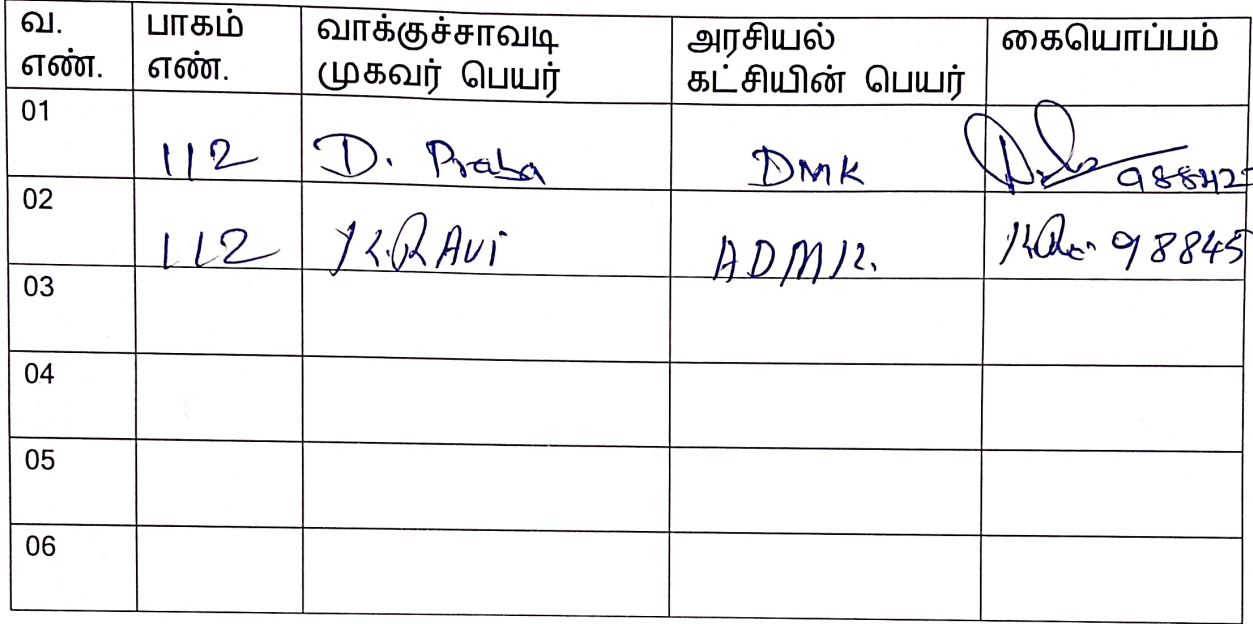 வ. எண். பாகம் எண். வாக்குச்சாவடி முகவர் பெயர் அரசியல் கட்சியின் பெயர் கையொப்பம்
01 112 D. Praba DMK 98842
02 112 K.RAvi ADMK. 98845
03
04
05
06